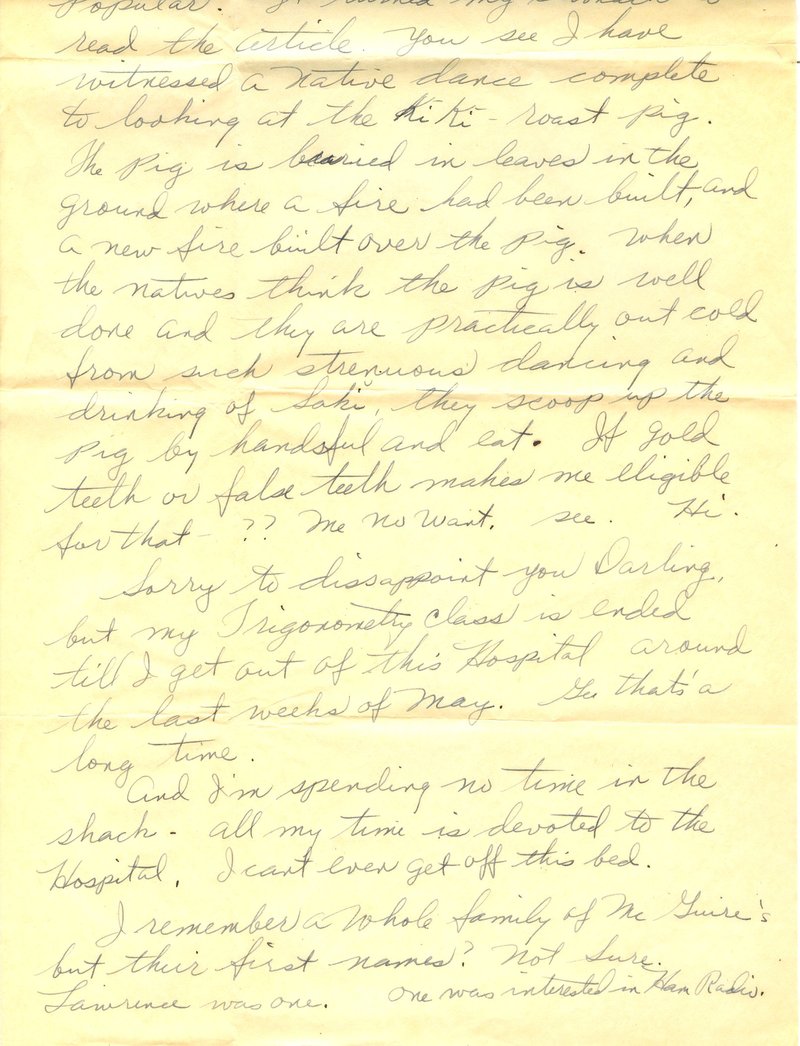 Popular. I turned my
read the article. You see I have
witnessed a native dance complete
to looking at the Ki Ki - roast pig.
The pig is buried in leaves in the
ground where a fire had been built, and
a new fire built over the pig. When
the natives think the pig is well
done and they are practically out cold
from such strenuous dancing and
drinking of Saki, they scoop up the
pig by handsful and eat. If gold
teeth or false teeth makes me eligible
for that - ?? Me no want. see. Hi.
Sorry to dissappoint you Darling,
but my Trigonometry class is ended
till I get out of this Hospital around
the last weeks of May. Gee that's a
long time.
And I'm spending no time in the
shack - all my time is devoted to the
Hospital. I can't even get off this bed.
I remember a whole family of Mc Guire's
but their first names? Not sure.
Lawrence was one. One was interested in Ham Radio.